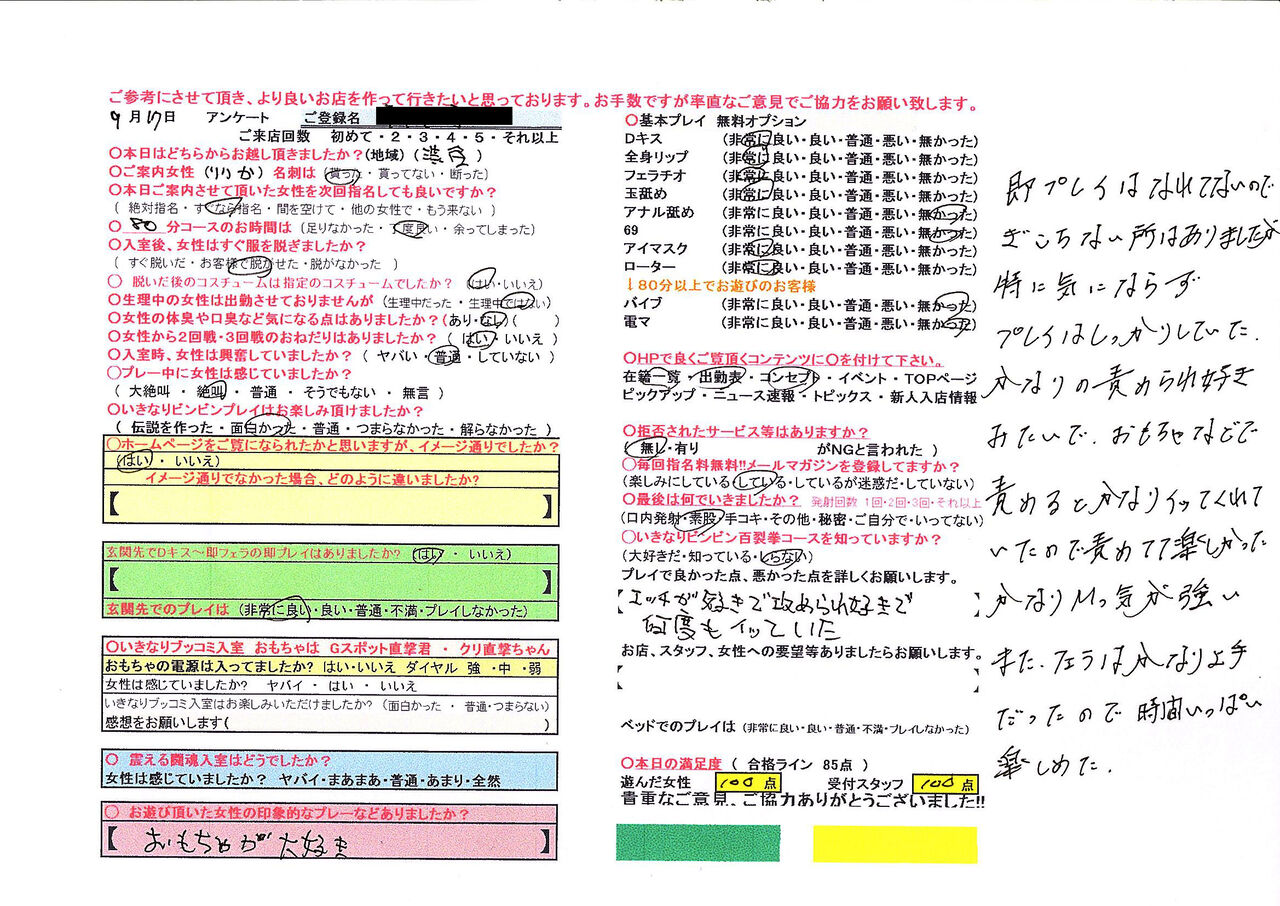 ご参考にさせて頂き、より良いお店を作って行きたいと思っております。お手数ですが率直なご意見でご協力をお願い致します。
9月17日 アンケート ご登録名
ご来店回数 初めて・2・3・4・5・それ以上
〇本日はどちらからお越し頂きましたか？(地域)( 渋谷 )
〇ご案内女性 (りりか) 名刺は (貰った・貰ってない・断った)
〇本日ご案内させて頂いた女性を次回指名しても良いですか？
( 絶対指名・すぐなら指名・間を空けて・他の女性で・もう来ない )
〇 80 分コースのお時間は (足りなかった・丁度良い・余ってしまった)
〇入室後、女性はすぐ服を脱ぎましたか？
( すぐ脱いだ・お客様で脱がせた・脱がなかった )
〇 脱いだ後のコスチュームは指定のコスチュームでしたか？ (はい・いいえ)
〇生理中の女性は出勤させておりませんが (生理中だった・生理中ではない)
〇女性の体臭や口臭など気になる点はありましたか？(あり・なし( )
〇女性から2回戦・3回戦のおねだりはありましたか？ ( はい・いいえ )
〇入室時、女性は興奮していましたか？ ( ヤバい・普通・していない )
〇プレー中に女性は感じていましたか？
( 大絶叫・絶叫・普通・そうでもない・無言 )
〇いきなりビンビンプレイはお楽しみ頂けましたか？
( 伝説を作った・面白かった・普通・つまらなかった・解らなかった )
〇ホームページをご覧になられたかと思いますが、イメージ通りでしたか？
(はい・ いいえ)
イメージ通りでなかった場合、どのように違いましたか？
【 】
玄関先でDキス～即フェラの即プレイはありましたか？ (はい ・ いいえ)
【 】
玄関先でのプレイは (非常に良い・良い・普通・不満・プレイしなかった)
〇いきなりブッコミ入室 おもちゃは Gスポット直撃君 ・ クリ直撃ちゃん
おもちゃの電源は入ってましたか？ はい・いいえ ダイヤル 強 ・中 ・弱
女性は感じていましたか？ ヤバイ ・ はい ・ いいえ
いきなりブッコミ入室はお楽しみいただけましたか？ (面白かった ・ 普通・つまらない)
感想をお願いします( )
〇 震える闘魂入室はどうでしたか？
女性は感じていましたか？ ヤバイ・まあまあ・普通・あまり・全然
〇 お遊び頂いた女性の印象的なプレーなどありましたか？
【 おもちゃが大好き 】
〇基本プレイ 無料オプション
Dキス (非常に良い・良い・普通・悪い・無かった)
全身リップ (非常に良い・良い・普通・悪い・無かった)
フェラチオ (非常に良い・良い・普通・悪い・無かった)
玉舐め (非常に良い・良い・普通・悪い・無かった)
アナル舐め (非常に良い・良い・普通・悪い・無かった)
69 (非常に良い・良い・普通・悪い・無かった)
アイマスク (非常に良い・良い・普通・悪い・無かった)
ローター (非常に良い・良い・普通・悪い・無かった)
↓80分以上でお遊びのお客様
バイブ (非常に良い・良い・普通・悪い・無かった)
電マ (非常に良い・良い・普通・悪い・無かった)
〇HPで良くご覧頂くコンテンツに〇を付けて下さい。
在籍一覧・出勤表・コンセプト・イベント・TOPページ
ピックアップ・ニュース速報・トピックス・新人入店情報
〇拒否されたサービス等はありますか？
( 無し・有り がNGと言われた )
〇毎回指名料無料!!メールマガジンを登録してますか？
(楽しみにしている・している・しているが迷惑だ・していない)
〇最後は何でいきましたか？ 発射回数 1回・2回・3回・それ以上
(口内発射・素股・手コキ・その他・秘密・ご自分で・いってない)
〇いきなりビンビン百裂拳コースを知っていますか？
(大好きだ・知っている・しらない)
プレイで良かった点、悪かった点を詳しくお願いします。
エッチが好きで攻められ好きで
何度もイッていた
お店、スタッフ、女性への要望等ありましたらお願いします。
ベッドでのプレイは (非常に良い・良い・普通・不満・プレイしなかった)
〇本日の満足度 ( 合格ライン 85点 )
遊んだ女性 100点 受付スタッフ 100点
貴重なご意見、ご協力ありがとうございました!!
即プレイはなれてないので
ぎこちない所はありましたが
特に気にならず
プレイはしっかりしていた.
かなりの責められ好き
みたいで、おもちゃなどで
責めるとかなりイッてくれて
いたので責めてて楽しかった
かなりMっ気が強い
また、フェラはかなり上手
だったので時間いっぱい
楽しめた.